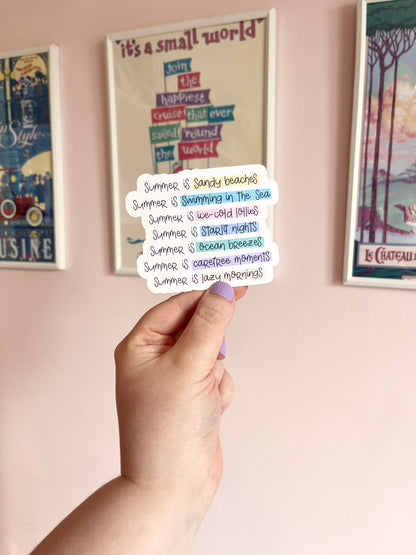 "it's a small world"
Join
the
happiest
cruise that ever
sailed round
the world
Summer is Sandy beaches
Summer is Swimming in the Sea
Summer is ice-cold lollies
Summer is Starlit nights
Summer is Ocean breezes
Summer is carefree moments
Summer is lazy mornings
Style
Le Chateau